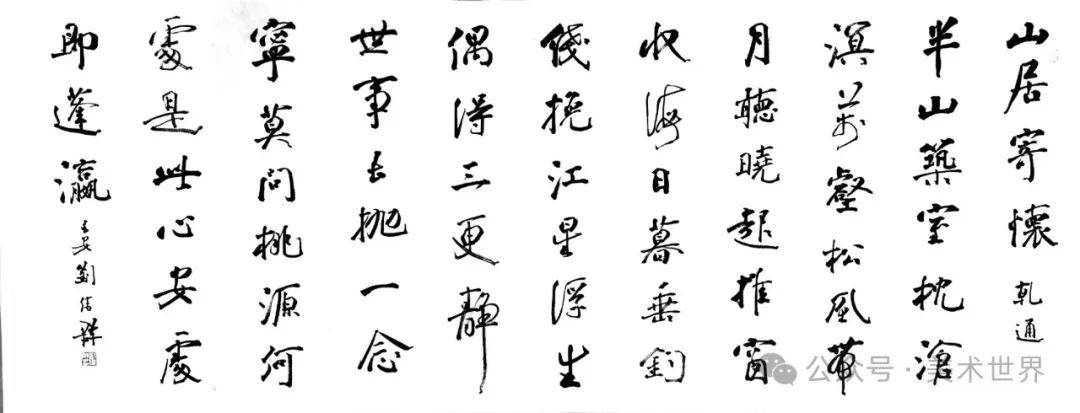 山居寄懷 乾通
半山築室枕滄
溟萬壑松風帶
月聽曉起推窗
收海日暮垂釣
綫挽江星浮生
偶得三更靜
世事長拋一念
寧莫問桃源何
處是此心安處
即蓬瀛 長安劉
公众号·美术世界